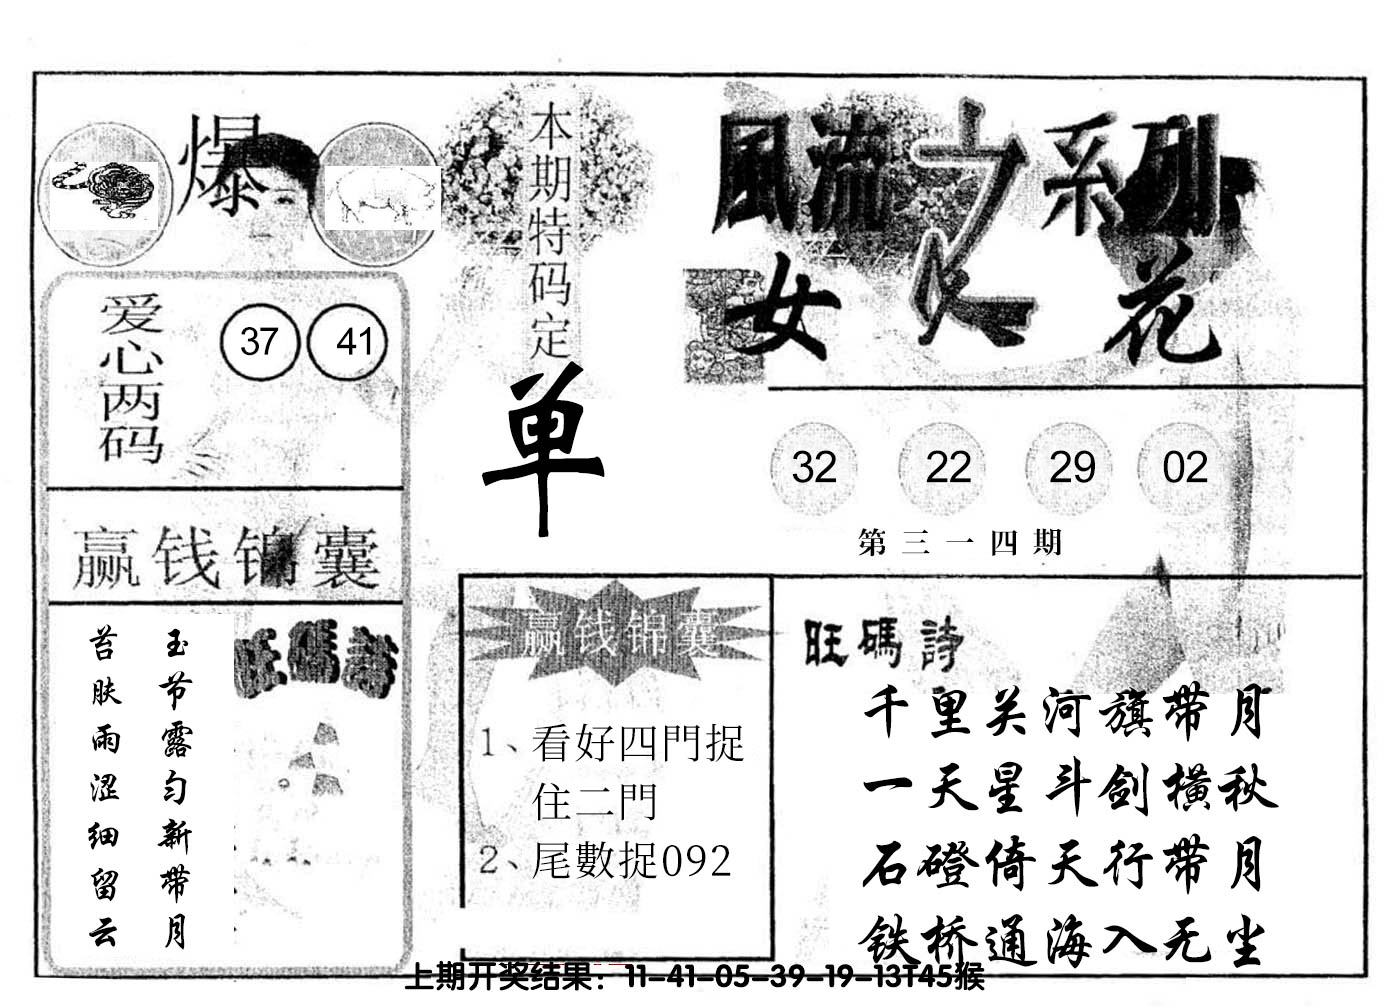 爆
本期特码定
单
風流之系列
女人花
爱心两码
37 41
32 22 29 02
第三一四期
赢钱锦囊
旺碼詩
玉节露匀新带月
苔肤雨涩细留云
赢钱锦囊
1、看好四門捉
住二門
2、尾數捉092
旺碼詩
千里关河旗带月
一天星斗剑横秋
石磴倚天行带月
铁桥通海入无尘
上期开奖结果：11-41-05-39-19-13T45猴